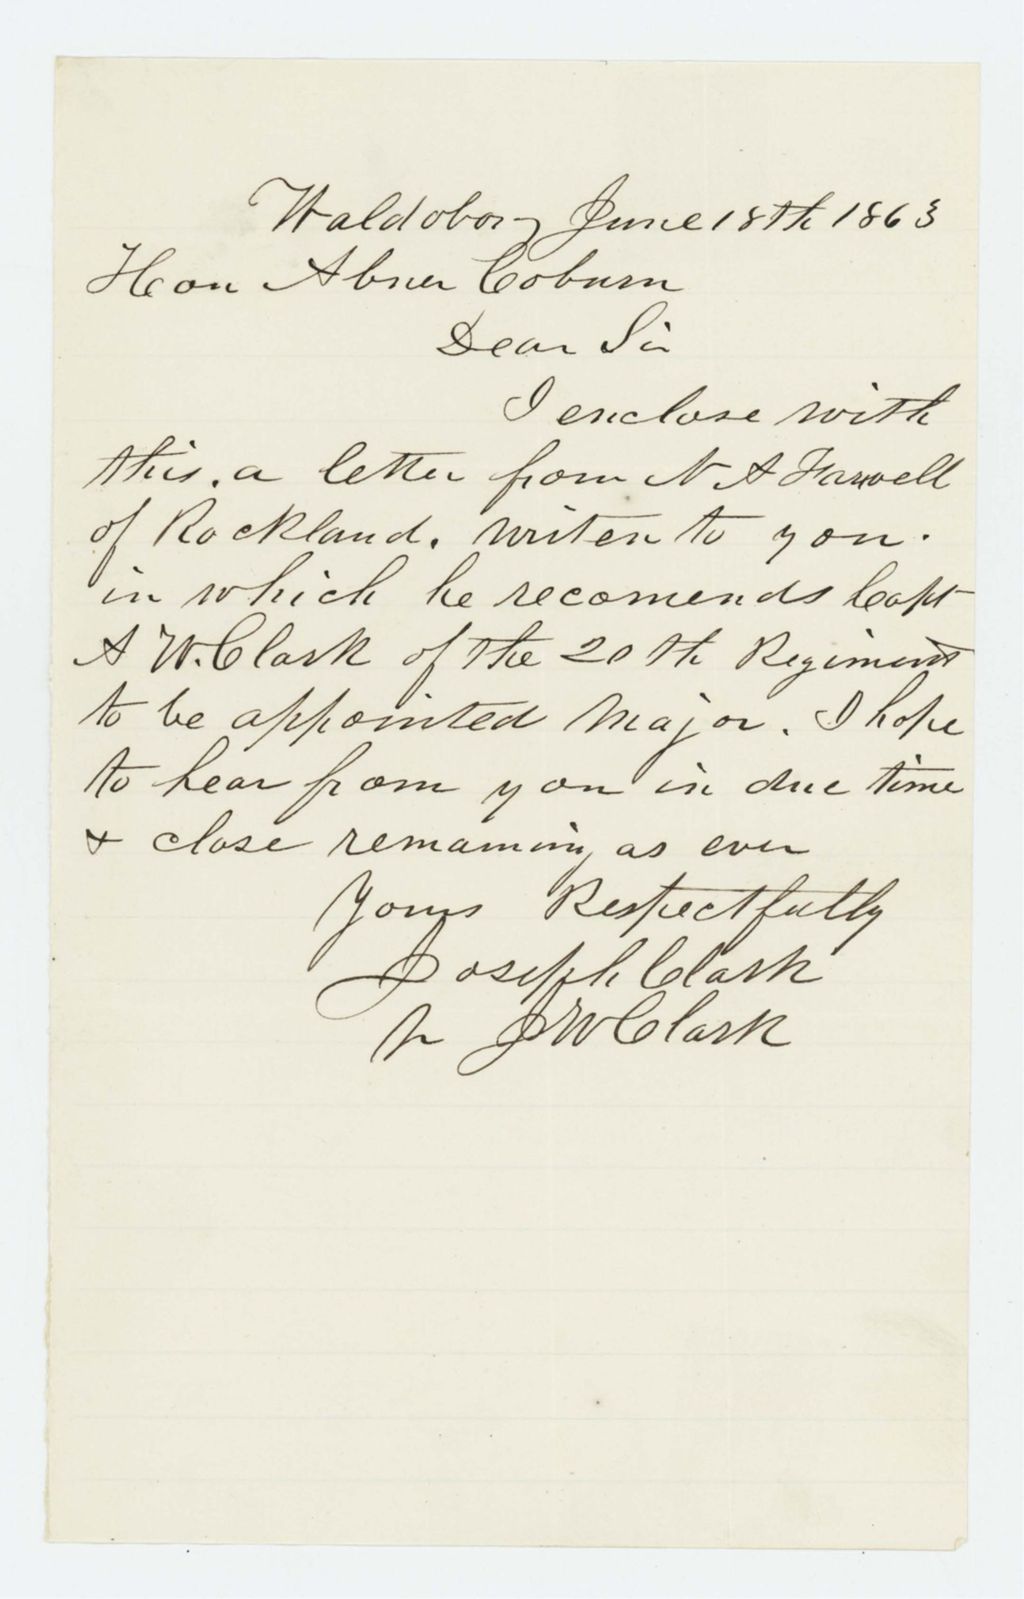 Waldoboro June 18th 1863
Hon Abner Coburn
Dear Sir
I enclose with
this. a letter from N A Farwell
of Rockland. writen to you.
in which he recomends Capt
A W. Clark of the 20th Regiment
to be appointed Major. I hope
to hear from you in due time
& close remaining as ever
Yours Respectfully
Joseph Clark
J W Clark